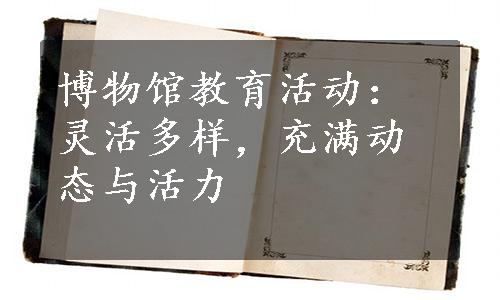 博物馆教育活动：
灵活多样，充满动
态与活力